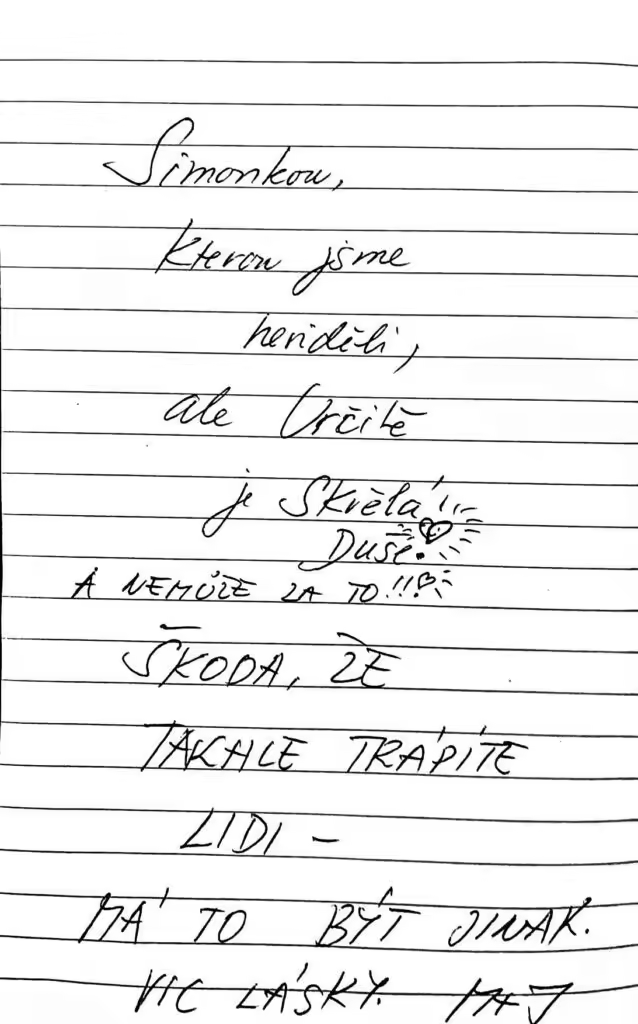 Simonkou,
kterou jsme
neviděli,
ale Určitě
je Skvělá!!!
Duše.
A NEMŮŽE ZA TO!!!
ŠKODA, ŽE
TAKHLE TRÁPÍTE
LIDI –
MÁ TO BÝT JINAK.
VÍC LÁSKY.